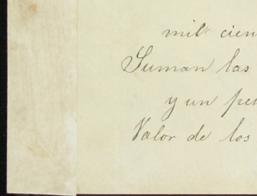 mil cien
Suman las
y un pe
Valor de los